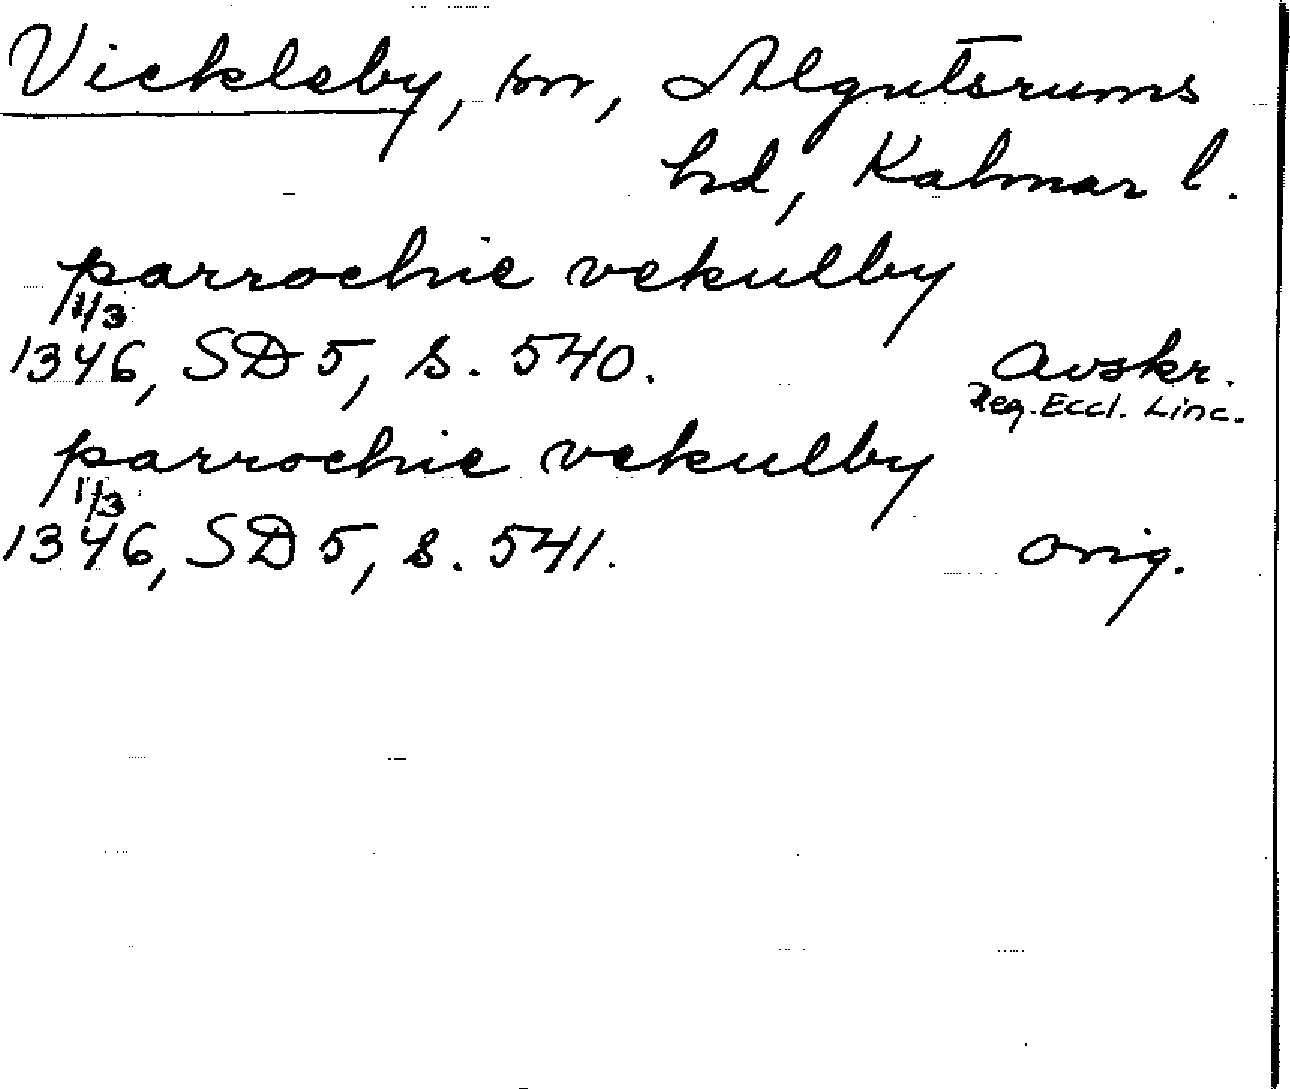 Vickleby, sn, Algutsrums
hd, Kalmar l.
parrochie vekulby
1/3
1346, SD 5, s. 540. Avskr.
Reg. Eccl. Linc.
parrochie vekulby
1/3
1346, SD 5, s. 541. Orig.